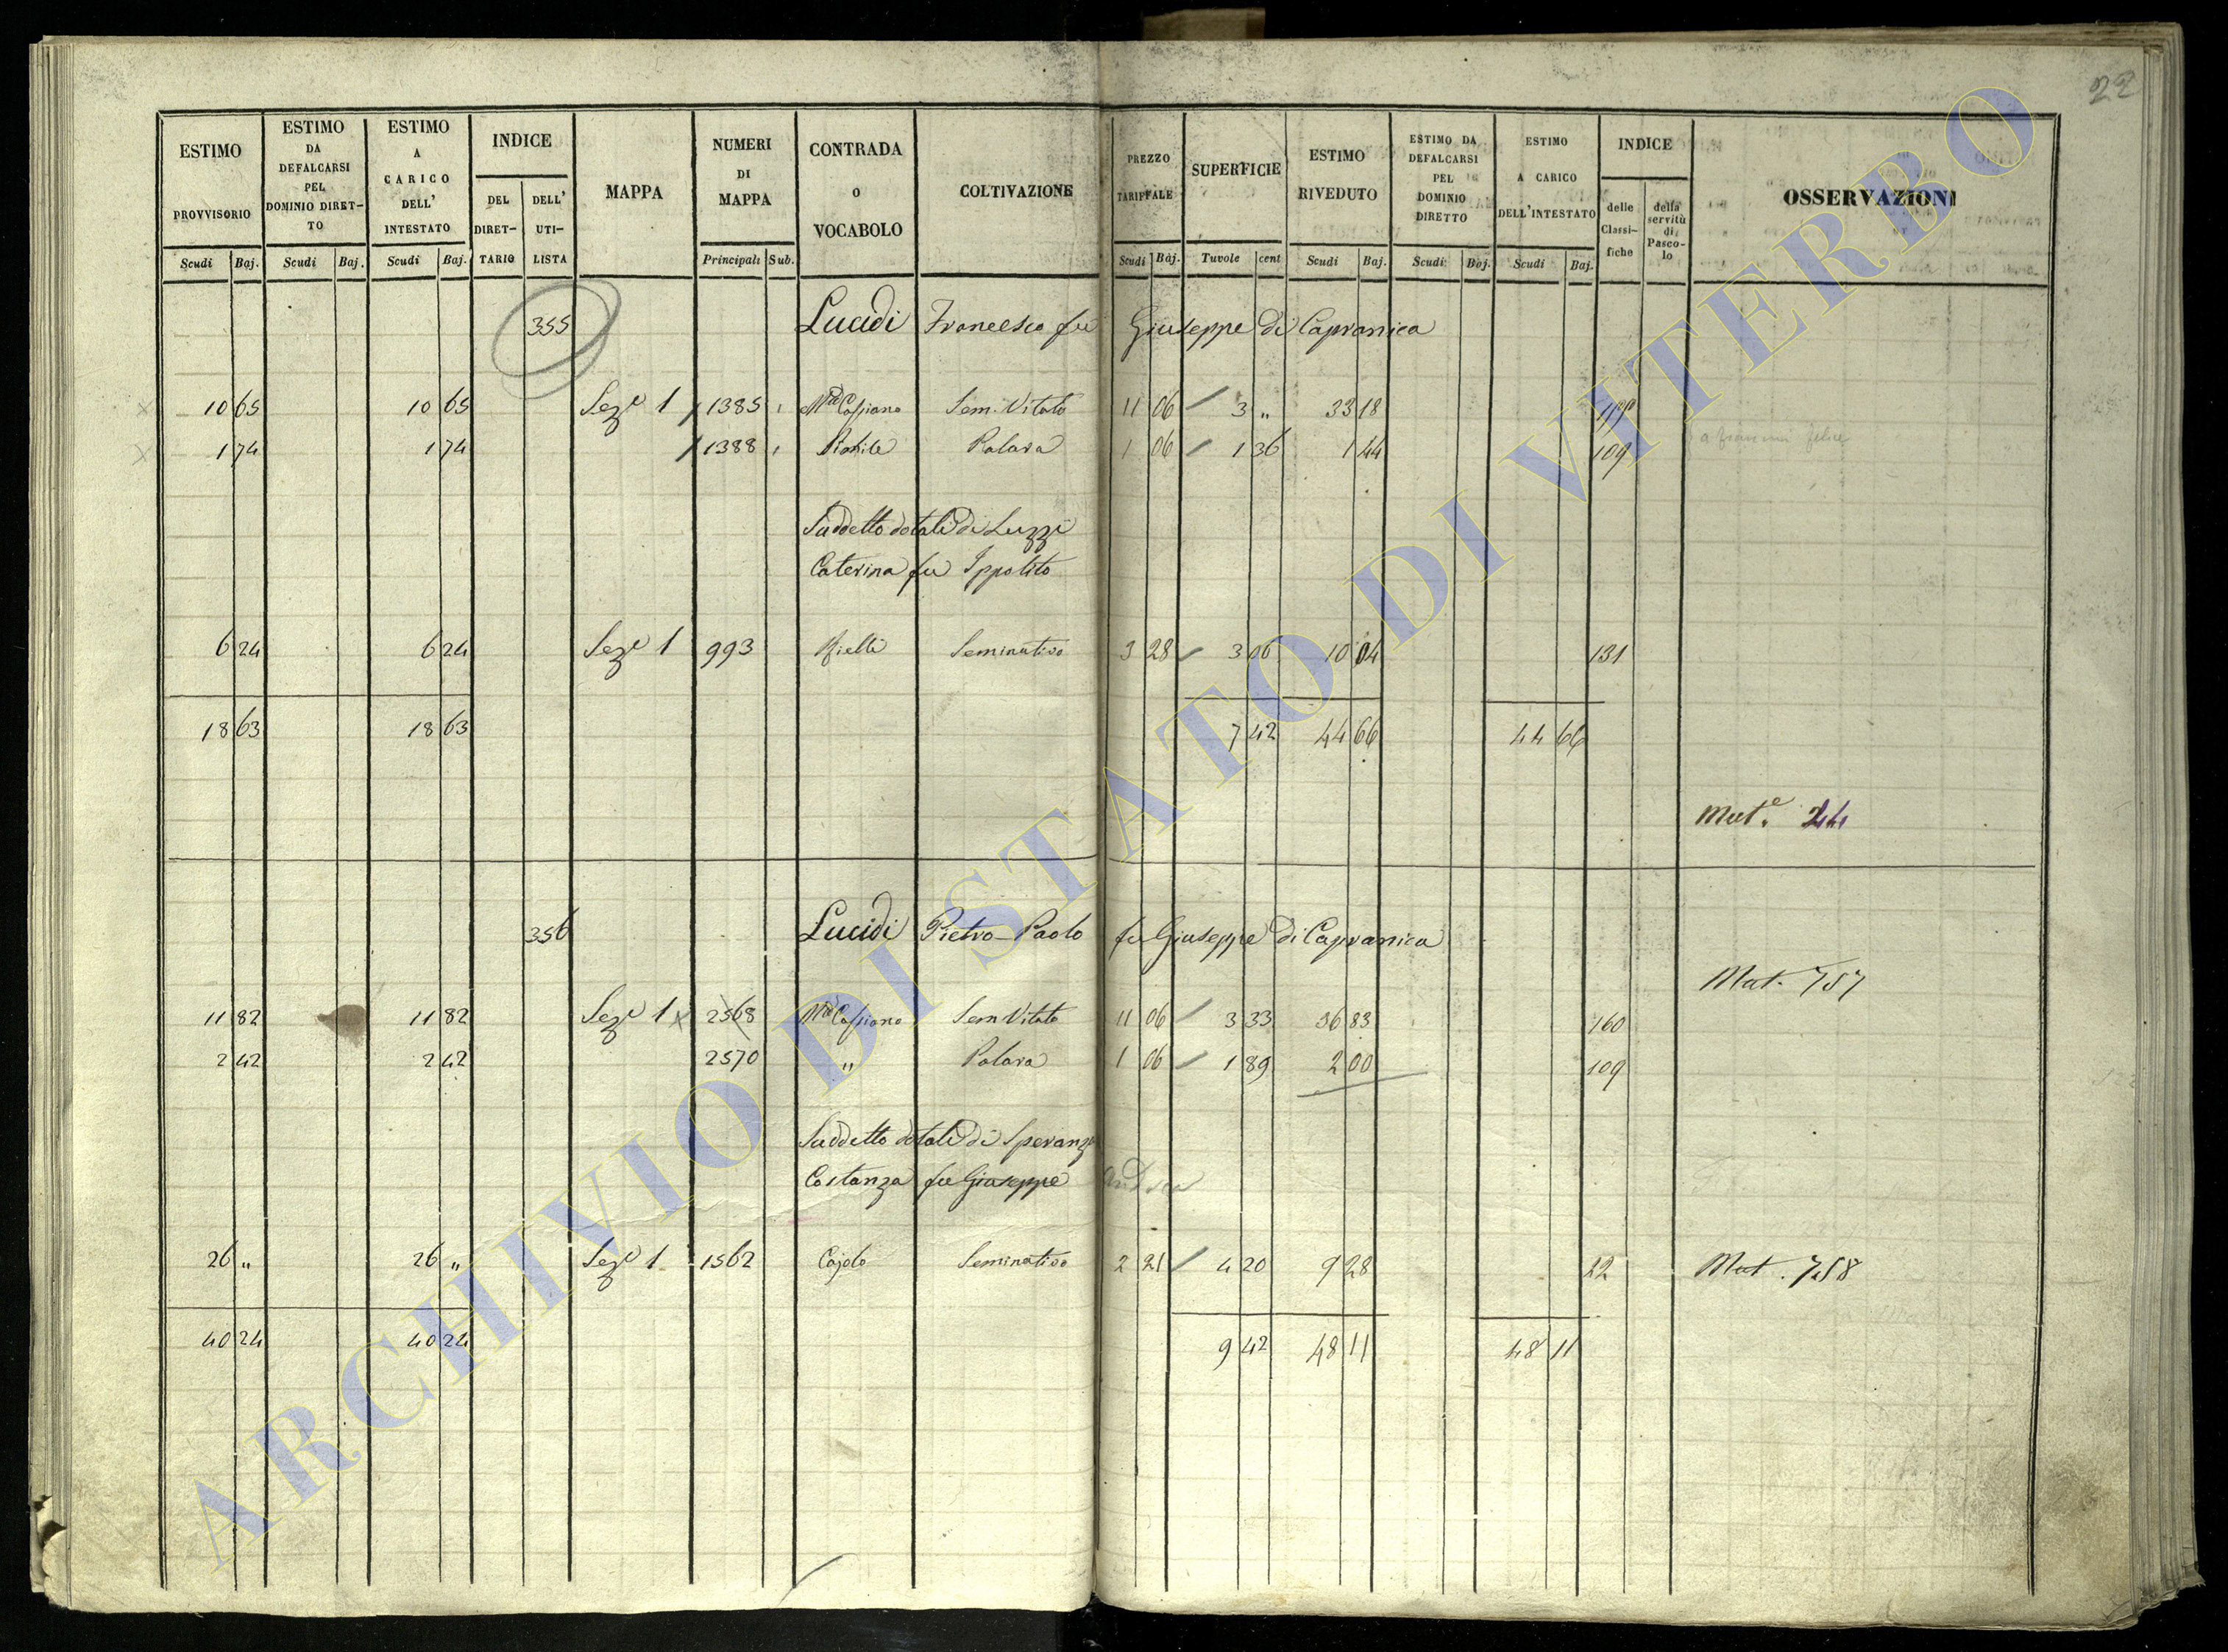 22
ESTIMO PROVVISORIO
ESTIMO DA DEFALCARSI PEL DOMINIO DIRET-TO
ESTIMO A CARICO DELL' INTESTATO
INDICE
DEL DIRET-TARIO
DELL' UTI-LISTA
MAPPA
NUMERI DI MAPPA
CONTRADA O VOCABOLO
COLTIVAZIONE
PREZZO TARIFFALE
SUPERFICIE
ESTIMO RIVEDUTO
ESTIMO DA DEFALCARSI PEL DOMINIO DIRETTO
ESTIMO A CARICO DELL'INTESTATO
INDICE
delle Classi-fiche
della servitù di Pasco-lo
OSSERVAZIONI
Scudi Baj. Scudi Baj. Scudi Baj. Principali Sub. Scudi Baj. Tavole cent Scudi Baj. Scudi Baj. Scudi Baj.
355 Lucidi Francesco fu Giuseppe di Capranica
10 65 10 65 Sez.e 1 1385 Sem. Vitato 11 06 3 „ 33 18
1 74 1 74 1388 1 06 1 36 1 44 109
Suddetto dotali di Luzzi
Caterina fu Ippolito
6 24 6 24 Sez.e 1 993 Seminativo 3 28 3 06 10 04 131
18 63 18 63 7 42 44 66 44 66
Mut.e 244
356 Lucidi Pietro-Paolo fu Giuseppe di Capranica
Mut. 757
11 82 11 82 Sez.e 1 2568 Sem Vitato 11 06 3 33 36 83 160
2 42 2 42 2570 „ 1 06 1 89 2 00 109
Suddetto dotali di Speranza
Costanza fu Giuseppe Andrea
26 „ 26 „ Sez.e 1 1562 Cajolo Seminativo 2 21 4 20 9 28 22 Mut. 758
40 24 40 24 9 42 48 11 48 11
ARCHIVIO DI STATO DI VITERBO